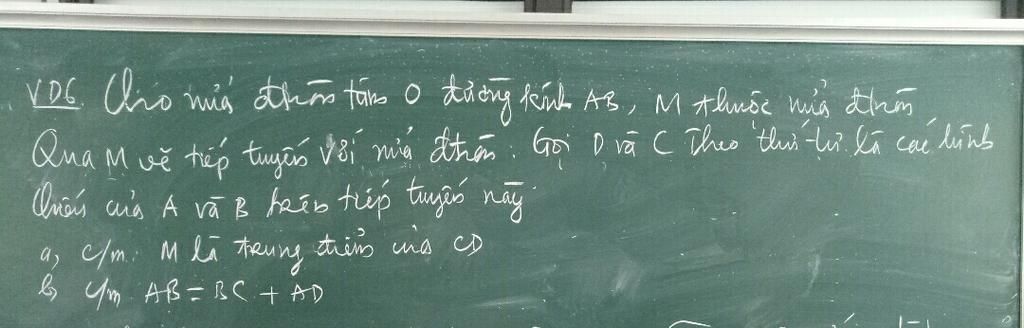 VD6. Cho nửa đtròn tâm O đường kính AB, M thuộc nửa đtròn
Qua M vẽ tiếp tuyến với nửa đtròn. Gọi D và C theo thứ tự là các hình
chiếu của A và B trên tiếp tuyến này.
a, c/m: M là trung điểm của CD
b, c/m AB = BC + AD